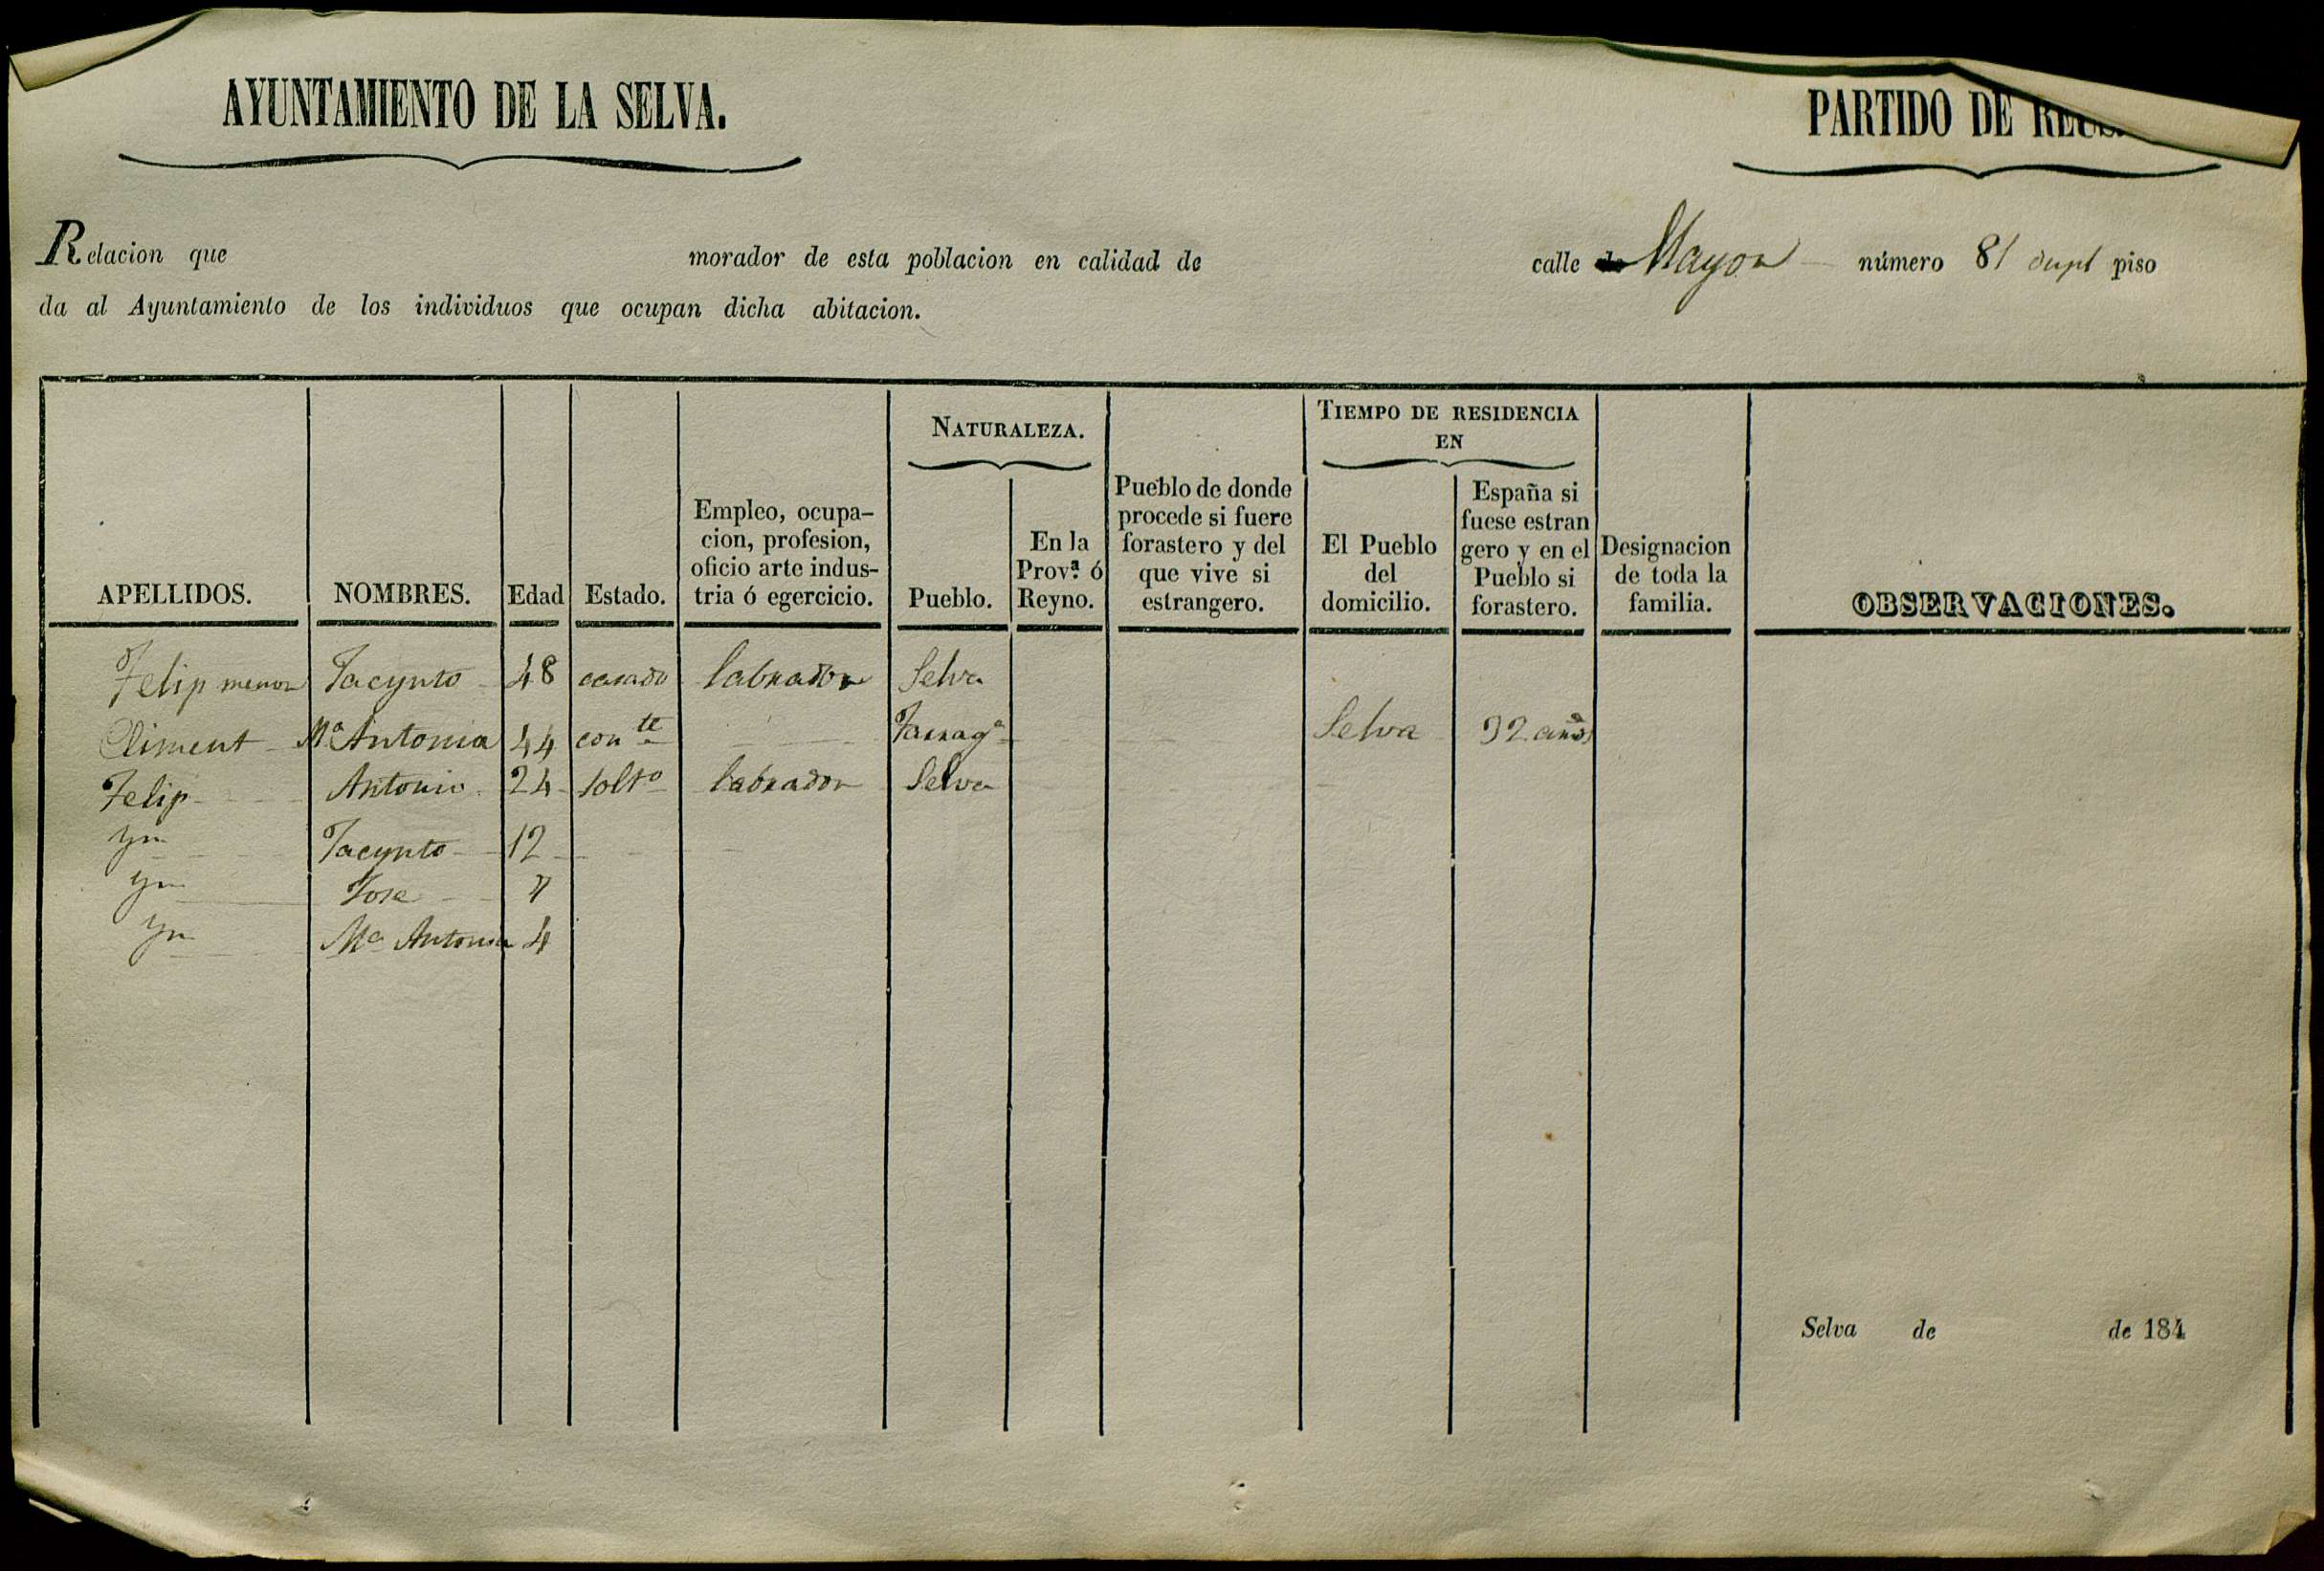 AYUNTAMIENTO DE LA SELVA.
PARTIDO DE REUS.
Relacion que morador de esta poblacion en calidad de calle de Mayor número 81 dupl piso
da al Ayuntamiento de los individuos que ocupan dicha abitacion.
APELLIDOS.
NOMBRES.
Edad
Estado.
Empleo, ocupa-
cion, profesion,
oficio arte indus-
tria ó egercicio.
NATURALEZA.
Pueblo.
En la
Prov.ª ó
Reyno.
Pueblo de donde
procede si fuere
forastero y del
que vive si
estrangero.
TIEMPO DE RESIDENCIA
EN
El Pueblo
del
domicilio.
España si
fuese estran
gero y en el
Pueblo si
forastero.
Designacion
de toda la
familia.
OBSERVACIONES.
Felip menor Jacynto 48 casado labrador Selva
Climent Mª Antonia 44 con te Tarragª Selva 32 años
Felip Antonio 24 solto labrador Selva
yn Jacynto 12
yn Jose 7
yn Mª Antonia 4
Selva de de 184